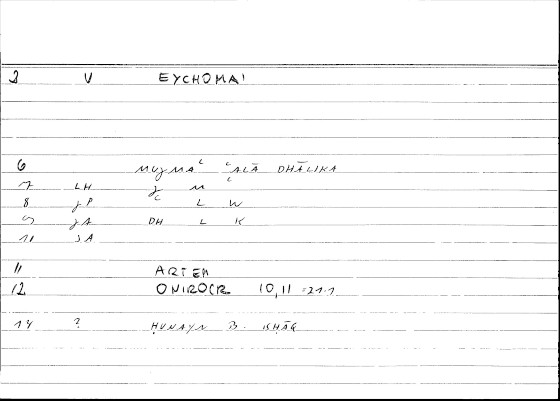 2 V EYCHOMAI
6 MUJMAʿ ʿALĀ DHĀLIKA
7 LH J M ʿ
8 JP ʿ L W
9 JA DH L K
10 SA
11 ARTEM
12 ONIROCR 10,11 = 21.1
14 ? ḤUNAYN B. ISḤĀQ